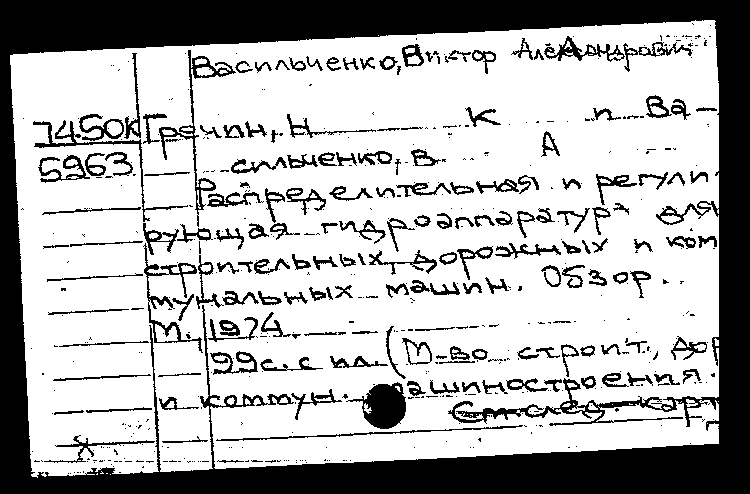 Васильченко, Виктор Александрович
7450К Гречин, Н К и Ва-
5963 сильченко, В А
Распределительная и регули-
рующая гидроаппаратура для
строительных, дорожных и ком
мунальных машин. Обзор.
М., 1974
99с. с ил. (М-во строит., дор
и коммун. машиностроения.
См след. карт